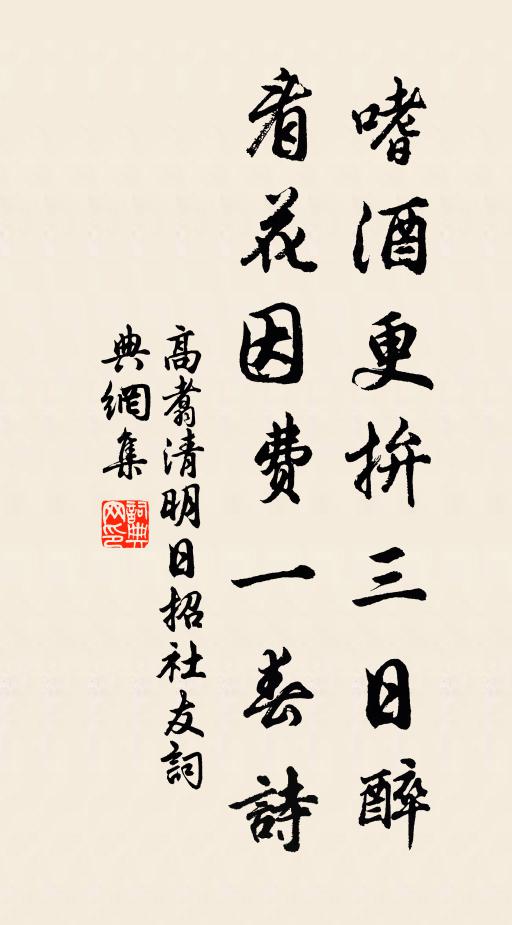 嗜酒更拚三日醉
看花因費一春詩
高翥清明日招社友詞
典網集
詞典
网印